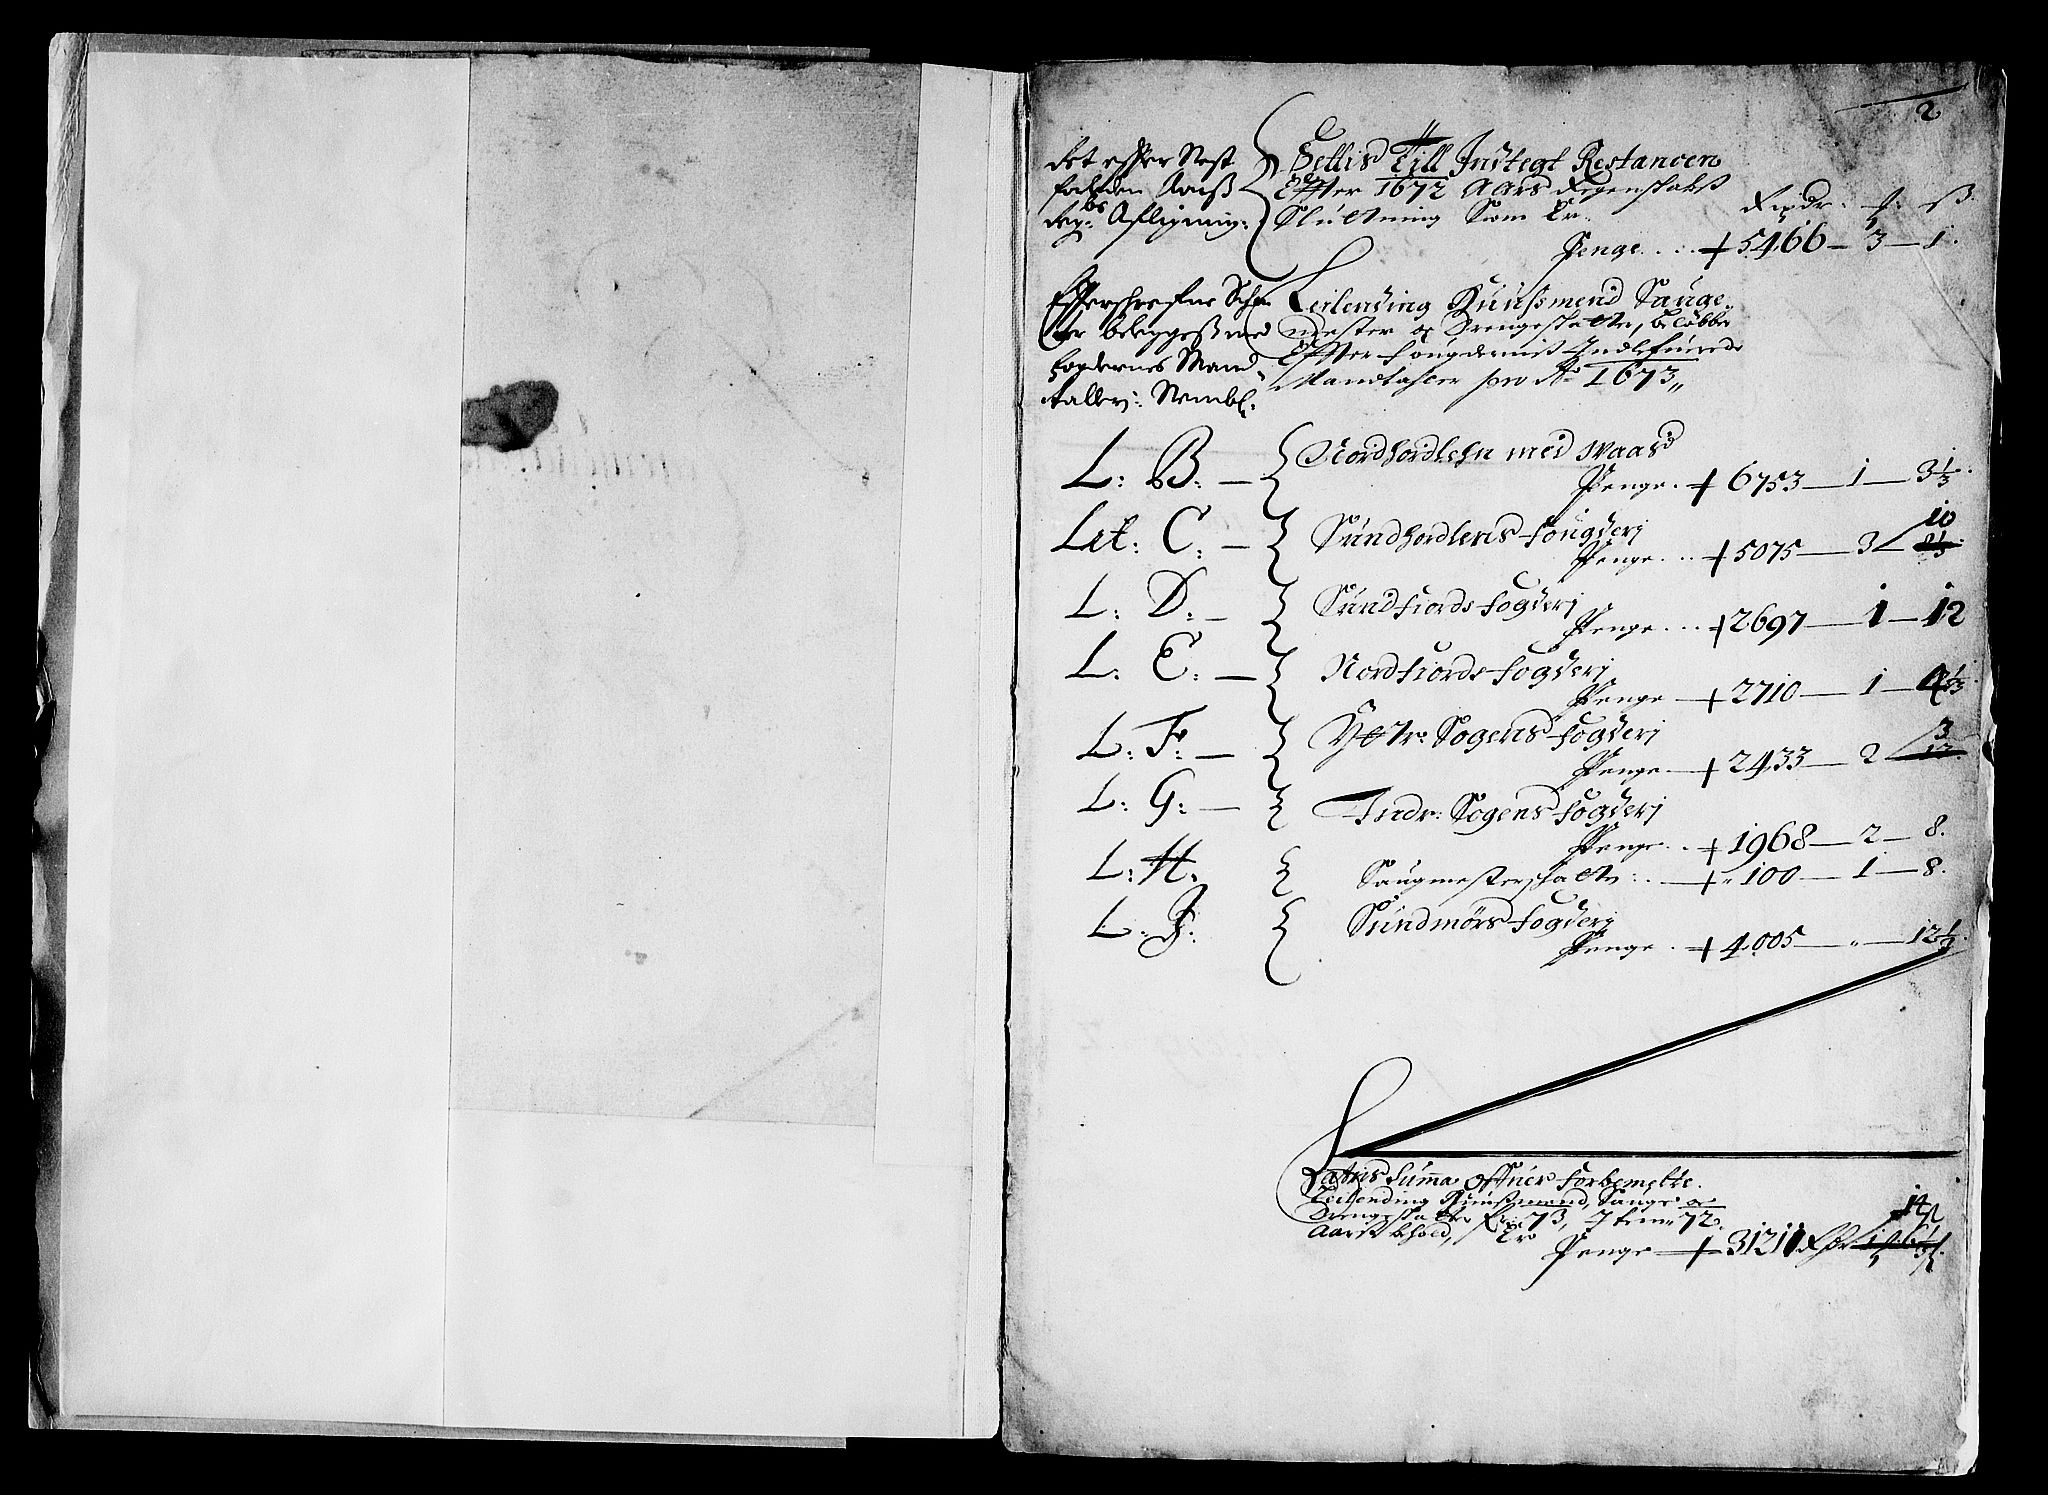 2
Det efter Nest
Settis Till Indtegt Restancen
Effter 1672 Aars Regenskabs
Slutning Som Er.
Rixdr: ß:
Penge + 5466 – 3 – 1.
Efferschrefne
Leilending Huusmend Sauge
mester og Drengeskatter, beløbber
Effter fougdernis Indlefuerede
Mandtaller pro Ao 1673
L: B: — Nordhordlehn med Waas
Penge + 6753 — 1 — 3 1/3.
Let: C: — Sundhordlens fougderj
Penge + 5075 — 3 — 10
L: D: — Sundfiords fogderj
Penge + 2697 — 1 — 12
L: E: — Nordfiords fogderj
Penge + 2710 — 1 —
L: F: — Yttr: Sogens fogderj
Penge + 2433 — 2 — 3
L: G: — Indr: Sogens fogderj
Penge + 1968 — 2 — 8.
L: H: Saugmesterschatte: + 100 — 1 — 8.
L: J: Sundmørs fogderj
Penge + 4005 — „ — 12 1/2.
Latris Summa offuer forbemelte.
Leilending Huusmend, Sauge og
Drengeskatter 73, Item 72
Aars behold, Er
14
Penge + 31211